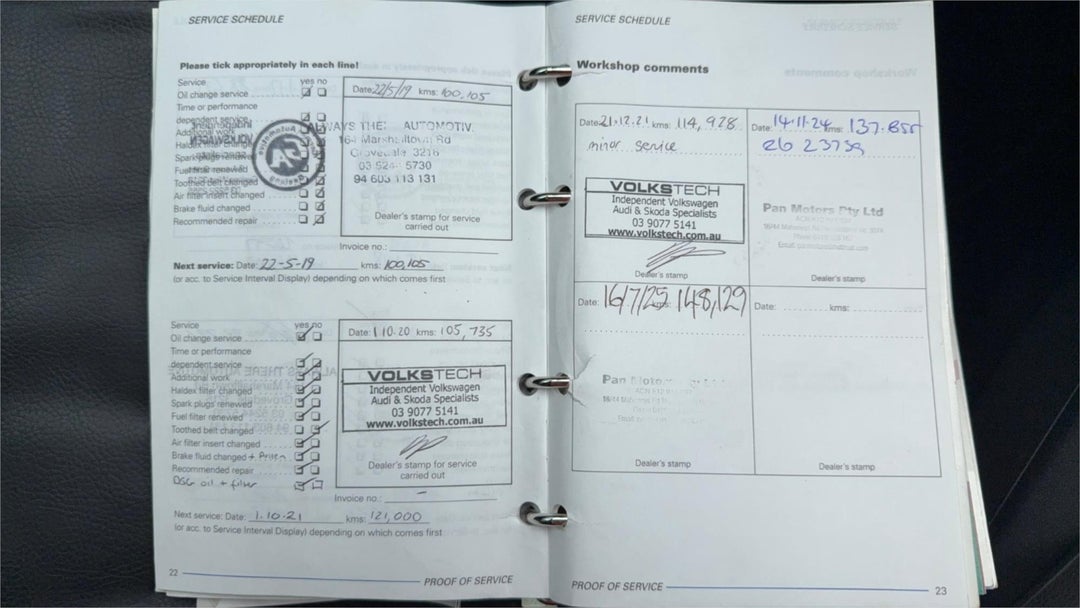 SERVICE SCHEDULE
Please tick appropriately in each line!
Service yes no
Oil change service
Time or performance
dependent service
Additional work
Haldex filter changed
Spark plugs renewed
Fuel filter renewed
Toothed belt changed
Air filter insert changed
Brake fluid changed
Recommended repair
Date: 22/5/19 kms: 100,105
ALWAYS THE AUTOMOTIV
164 Marshalltown Rd
Grovedale 3216
03 524 5730
94 603 113 131
Dealer's stamp for service
carried out
Invoice no.:
Next service: Date: 22-5-19 kms: 100,105
(or acc. to Service Interval Display) depending on which comes first
Service yes no
Oil change service
Time or performance
dependent service
Additional work
Haldex filter changed
Spark plugs renewed
Fuel filter renewed
Toothed belt changed
Air filter insert changed
Brake fluid changed
Recommended repair
DSG oil + filter
Date: 1 10.20 kms: 105,735
VOLKSTECH
Independent Volkswagen
Audi & Skoda Specialists
03 9077 5141
www.volkstech.com.au
Dealer's stamp for service
carried out
Invoice no.: -
Next service: Date: 1.10.21 kms: 121,000
(or acc. to Service Interval Display) depending on which comes first
22
PROOF OF SERVICE
SERVICE SCHEDULE
Workshop comments
Date: 21.12.21 kms: 114,928
minor service
VOLKSTECH
Independent Volkswagen
Audi & Skoda Specialists
03 9077 5141
www.volkstech.com.au
Dealer's stamp
Date: 14.11.24 kms: 137.855
Pan Motors Pty Ltd
Dealer's stamp
Date: 16/7/25 kms: 148,129
Pan Motors
Dealer's stamp
Date: kms:
Dealer's stamp
PROOF OF SERVICE
23